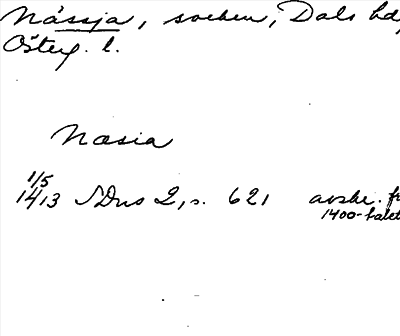 Nässja, socken, Dals hd,
Österg. l.
Næsia
1/5
1413 SDns 2, s. 621 avskr. fr
1400-talet